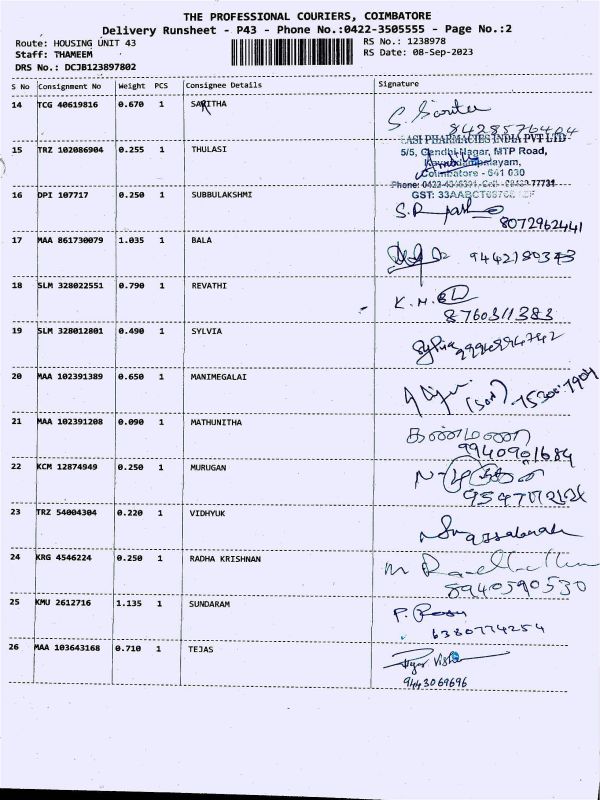 THE PROFESSIONAL COURIERS, COIMBATORE
Delivery Runsheet - P43 - Phone No.:0422-3505555 - Page No.:2
Route: HOUSING UNIT 43
Staff: THAMEEM
DRS No.: DCJB123897802
RS No.: 1238978
RS Date: 08-Sep-2023
S No Consignment No Weight PCS Consignee Details Signature
14 TCG 40619816 0.670 1 SARITHA
8428576404
15 TRZ 102086904 0.255 1 THULASI
PHARMACIES INDIA PVT LTD
5/5, Gandhi Nagar, MTP Road,
Coimbatore - 641 030
Phone:
GST:
16 DPI 107717 0.250 1 SUBBULAKSHMI
8072962441
17 MAA 861730079 1.035 1 BALA
9442180343
18 SLM 328022551 0.790 1 REVATHI
K.M.
8760311383
19 SLM 328012801 0.490 1 SYLVIA
Sylvia
20 MAA 102391389 0.650 1 MANIMEGALAI
(Son)
21 MAA 102391208 0.090 1 MATHUNITHA
கண்மணி
9940901684
22 KCM 12874949 0.250 1 MURUGAN
23 TRZ 54004304 0.220 1 VIDHYUK
24 KRG 4546224 0.250 1 RADHA KRISHNAN
8940590530
25 KMU 2612716 1.135 1 SUNDARAM
6380774254
26 MAA 103643168 0.710 1 TEJAS
9443069696